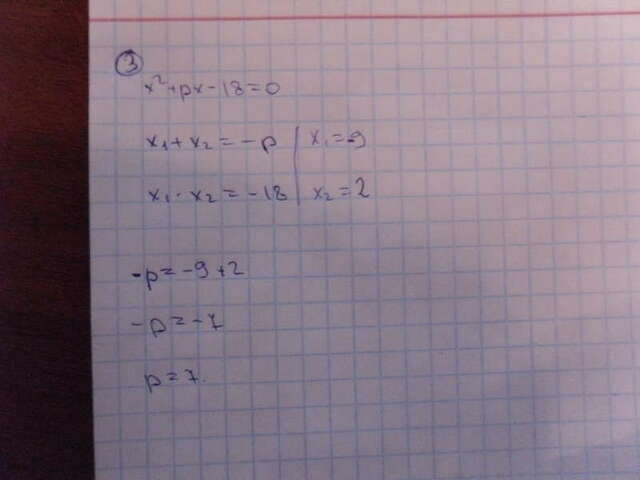 3
x²+px-18=0
x₁+x₂=-p | x₁=-9
x₁·x₂=-18 | x₂=2
-p=-9+2
-p=-7
p=7.